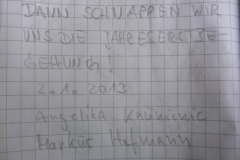 DANN SCHNAPPEN WIR
UNS DIE JAHRESERSTBE-
GEHUNG!
2.1.2013
Angelika
Markus Hofmann